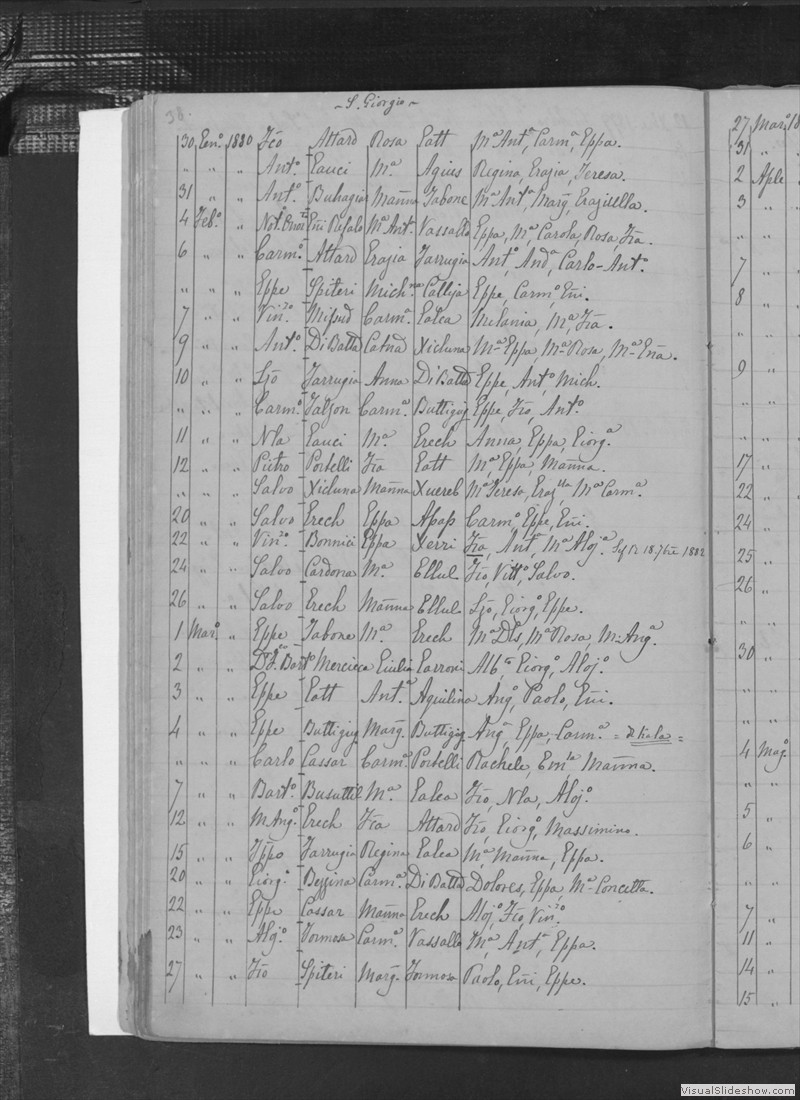 38.
~ S. Giorgio ~
30 Genº 1880 Fcõ Attard Rosa Gatt Mª Antª, Carmª, Eppa.
" " " Antº Gauci Mª Agius Regina, Grazia, Teresa.
31 " " Antº Buhagiar Mañna Tabone Mª Antª, Marg, Grazisella.
4 Febº " Notº Eñi Refalo Mª Antª Vassallo Eppa, Mª, Carola, Rosa, Fca.
6 " " Carmº Attard Grazia Farrugia Antº, Andª, Carlo-Antº.
" " " Eppe Spiteri Michna Calleja Eppe, Carmº, Eñi.
7 " " Vinzº Mifsud Carmª Galea Melania, Mª, Fca.
9 " " Antº DiBatta Catna Xicluna Mª Eppa, Mª Rosa, Mª Eña.
10 " " Ljo Farrugia Anna DiBatta Eppe, Antº, Mich.
" " " Carmº Falzon Carmª Buttigig Eppe, Fcõ, Antº.
11 " " Nla Gauci Mª Grech Anna, Eppa, Giorgª
12 " " Pietro Portelli Fca Gatt Mª, Eppa, Mañna.
" " " Salvo Xicluna Mañna Xuereb Mª Teresa, Grazlla, Mª Carmª.
20 " " Salvo Grech Eppa Apap Carmº, Eppe, Eñi.
22 " " Vinzº Bonnici Eppa Xerri Fca, Ant, Mª Alojª 18. 7bre 1882
24 " " Salvo Cardona Mª Ellul Fcõ, Vittº, Salvo.
26 " " Salvo Grech Mañna Ellul Ljo, Giorgº, Eppe.
1 Marº " Eppe Tabone Mª Grech Mª Dls, Mª Rosa, M-Angª
2 " " Bartº Mercieca Giulia Garroni Albta, Giorgº, Alojº.
3 " " Eppe Gatt Antª Aquilina Angº, Paolo, Eñi.
4 " " Eppe Buttigig Marg Buttigig Angª, Eppa, Carmª
" " " Carlo Cassar Carmª Portelli Rachele, Emla, Mañna.
7 " " Bartº Busuttil Mª Galea Fcõ, Nla, Alojº
12 " " M.Angº Grech Fca Attard Fcõ, Giorgº, Massimino.
15 " " Farrugia Regina Galea Mª, Mañna, Eppa.
20 " " Giorgº Bezzina Carmª DiBatta Dolores, Eppa, Mª-Concetta.
22 " " Eppe Cassar Mañna Grech Alojº, Fcõ, Vinzº
23 " " Alojº Formosa Carmª Vassallo Mª, Antª, Eppa.
27 " " Fcõ Spiteri Marg Formosa Paolo, Eñi, Eppe.
27 Marº 18
31 "
2 Aple
3 "
" "
7 "
8 "
" "
9 "
" "
17 "
22 "
24 "
25 "
26 "
30 "
" "
4 Magº
5 "
6 "
7 "
11 "
14 "
15 "
VisualSlideshow.com